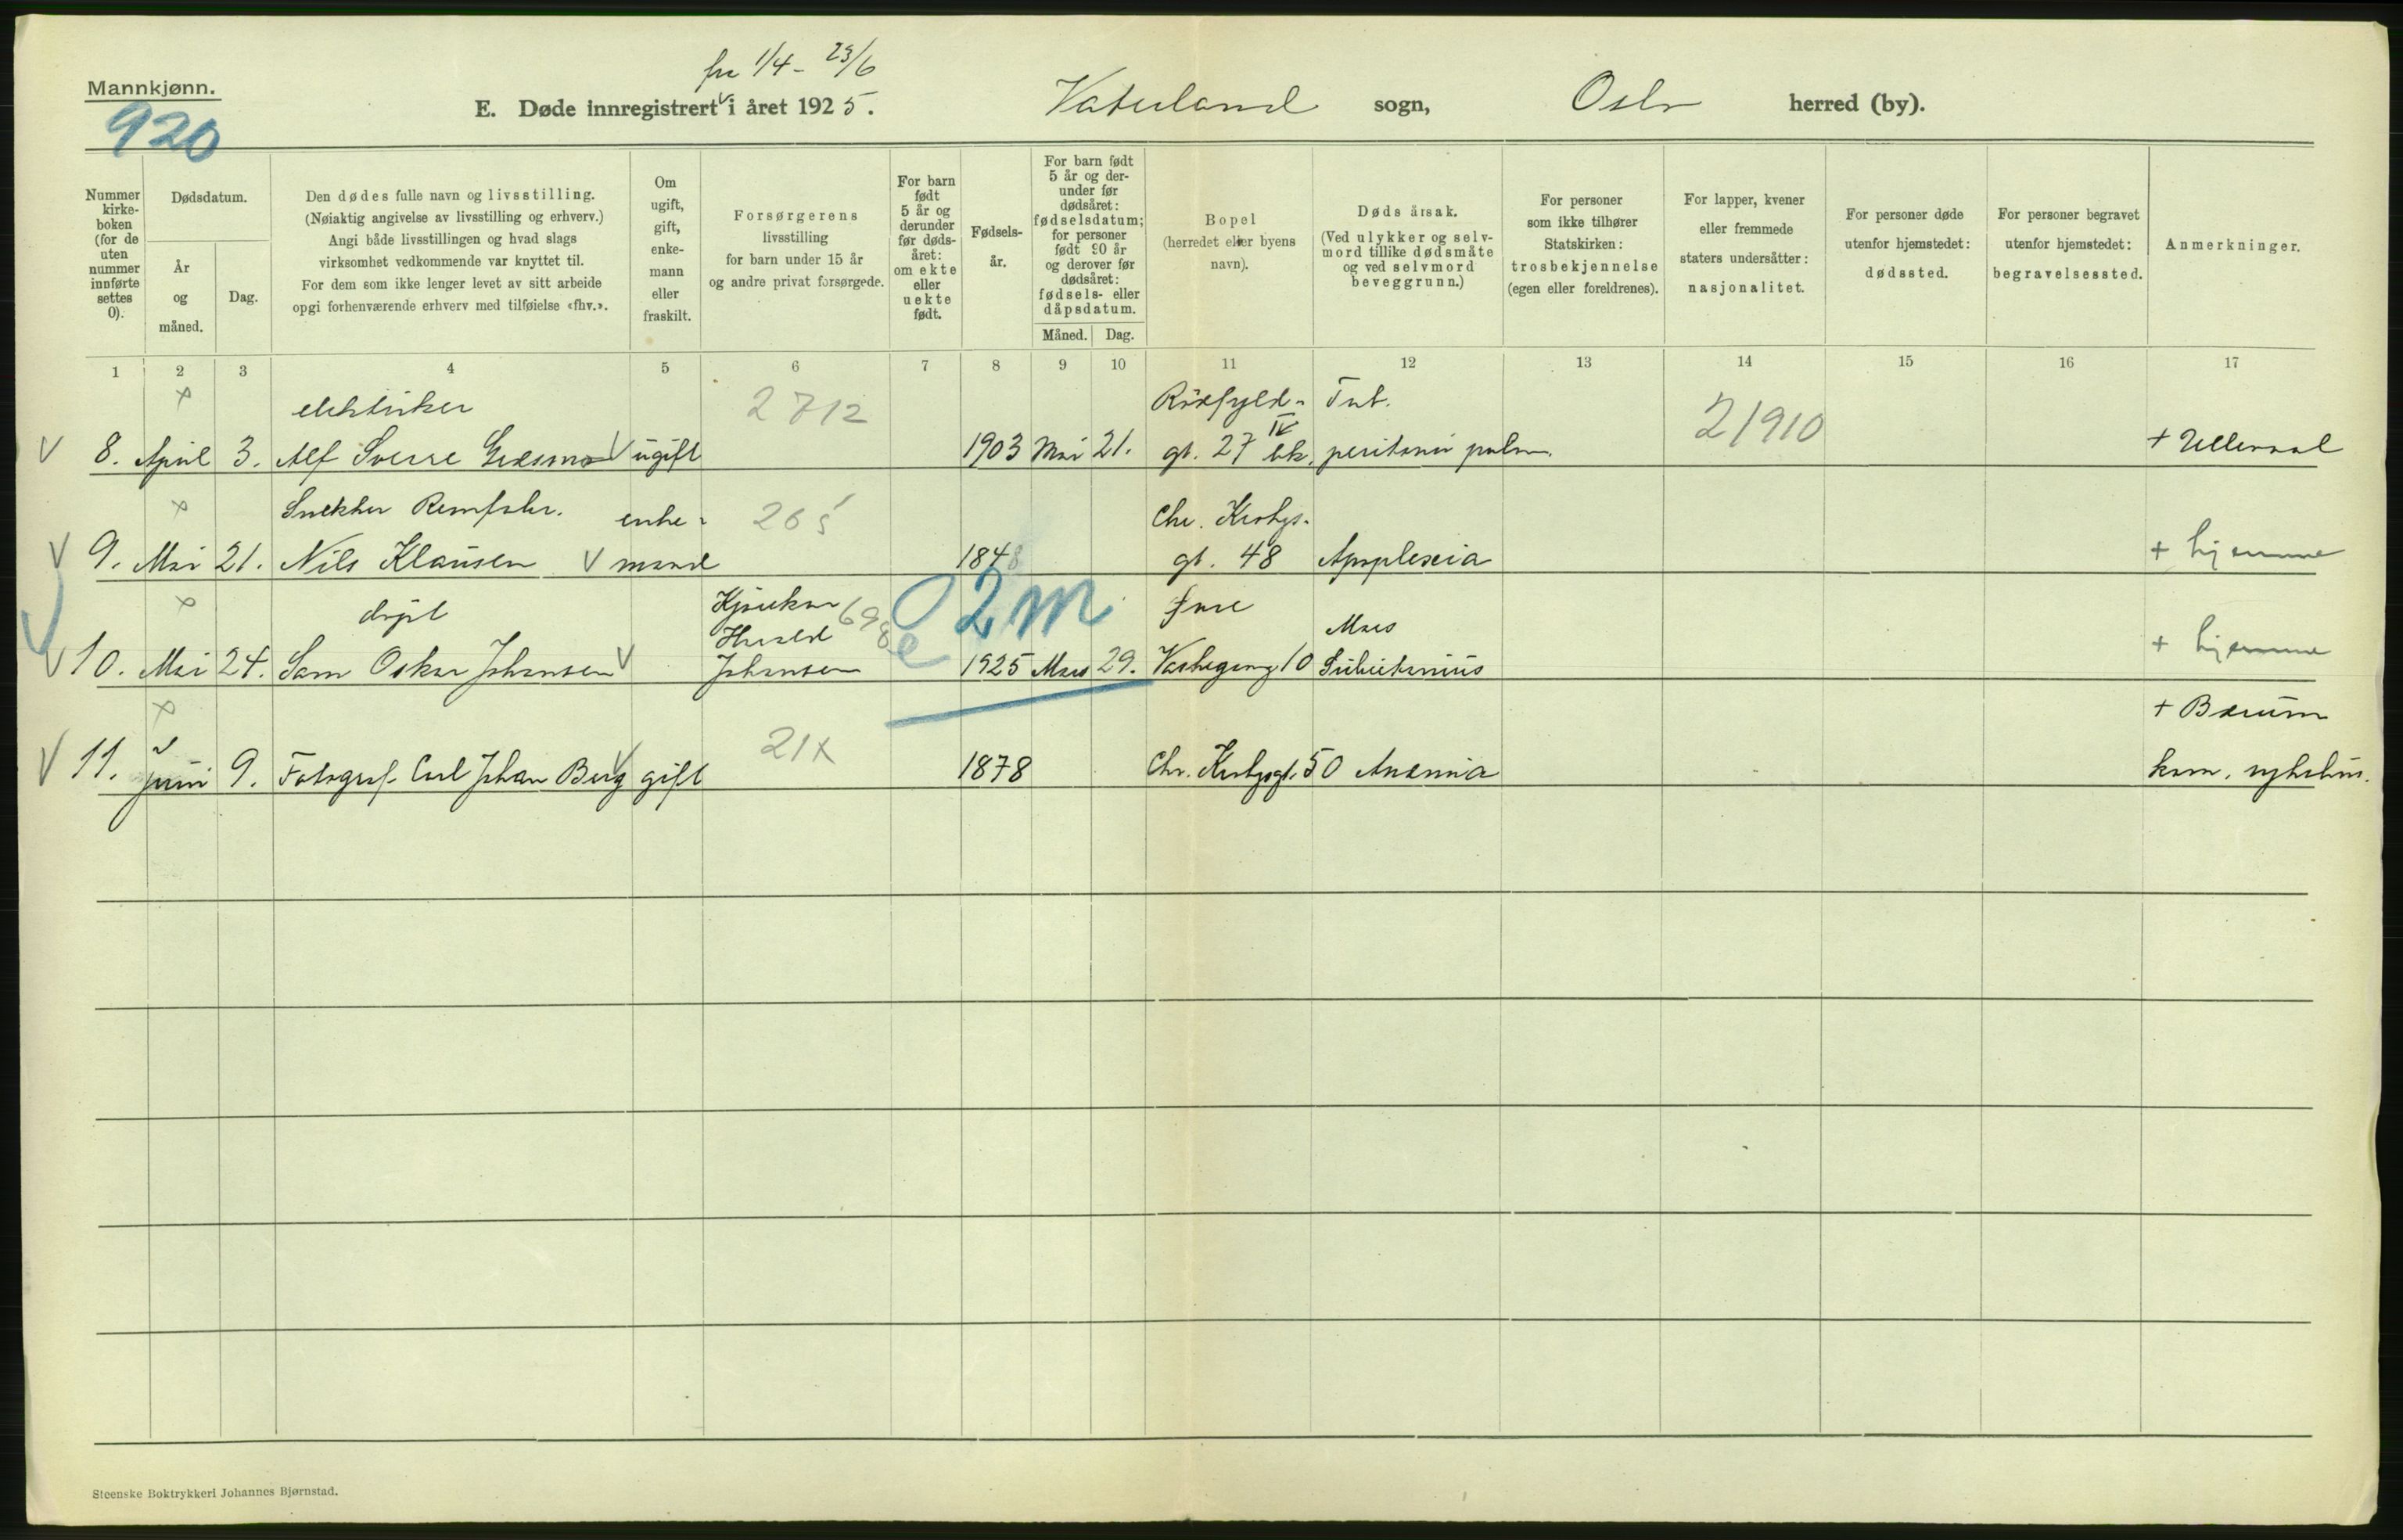 fra 1/4 - 23/6
Mannkjønn.
920
E. Døde innregistrert i året 1925. Vaterland sogn, Oslo herred (by).
Nummer kirke-boken (for de uten nummer innførte settes 0).
Dødsdatum.
År og måned.
Dag.
Den dødes fulle navn og livsstilling.
(Nøiaktig angivelse av livsstilling og erhverv.)
Angi både livsstillingen og hvad slags
virksomhet vedkommende var knyttet til.
For dem som ikke lenger levet av sitt arbeide
opgi forhenværende erhverv med tilføielse «fhv.».
Om ugift, gift, enke-mann eller fraskilt.
Forsørgerens
livsstilling
for barn under 15 år
og andre privat forsørgede.
For barn født 5 år og derunder før døds-året: om ekte eller uekte født.
Fødsels-år.
For barn født 5 år og der-under før dødsåret: fødselsdatum; for personer født 90 år og derover før dødsåret: fødsels- eller dåpsdatum.
Måned. Dag.
Bopel
(herredet eller byens navn).
Dødsårsak.
(Ved ulykker og selv-mord tillike dødsmåte og ved selvmord beveggrunn.)
For personer som ikke tilhører Statskirken: trosbekjennelse (egen eller foreldrenes).
For lapper, kvener eller fremmede staters undersåtter: nasjonalitet.
For personer døde utenfor hjemstedet: dødssted.
For personer begravet utenfor hjemstedet: begravelsessted.
Anmerkninger.
1 2 3 4 5 6 7 8 9 10 11 12 13 14 15 16 17
× elektriker 2712 Tub. 21910
V 8. April 3. Alf Sverre V ugift 1903 Mai 21. gt. 27 IV peritonei pulm. + Ullevaal
× Snekker enke- 265 Chr. Krohgs-
V 9. Mai 21. Nils Klausen V mand 1848 gt. 48 Apoplexia + hjemme
× døpt 698 e 2m
Harald Mors
V 10. Mai 24. Oskar Johansen V Johansen 1925 Mars 29. 10 + hjemme
× 21x + Bærum
V 11. Juni 9. Fotograf Carl Johan Berg V gift 1878 Chr. Krohgsgt. 50 Anæmia kom. sykehus.
Steenske Boktrykkeri Johannes Bjørnstad.